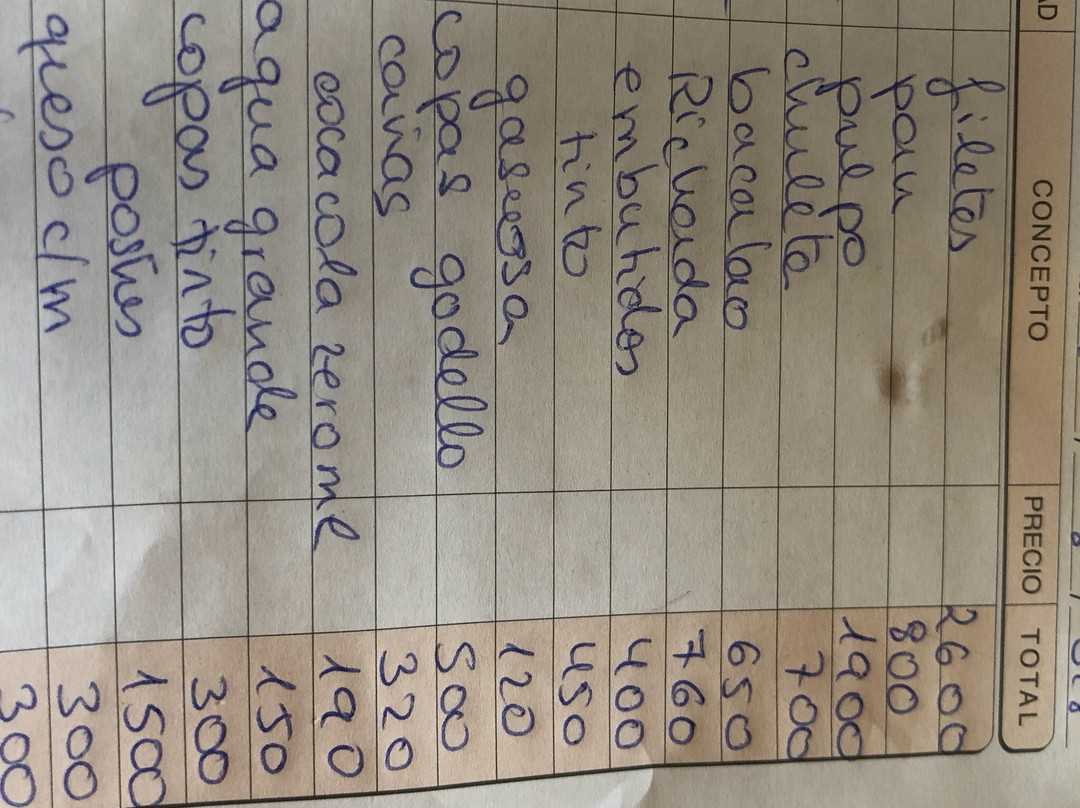 AD CONCEPTO PRECIO TOTAL
filetes 2600
pan 800
pulpo 1900
chuleta 700
bacalao 650
Richada 760
embutidos 400
tinto 450
gaseosa 120
copas godello 500
cañas 320
cocacola zero me 190
agua grande 150
copas tinto 300
postres 1500
queso c/m 300
300